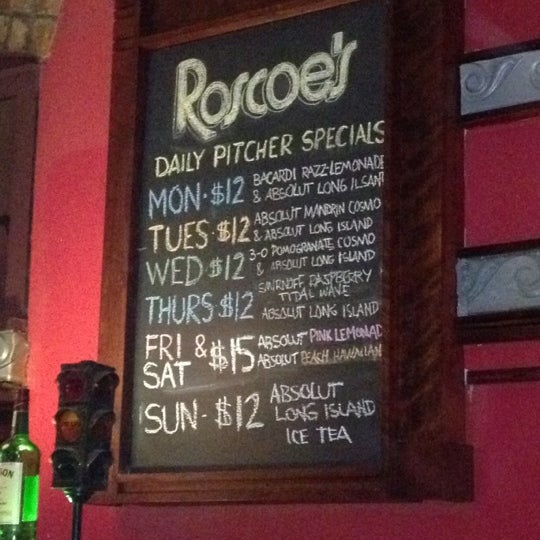 Roscoe's
DAILY PITCHER SPECIALS
MON · $12 BACARDI RAZZ-LEMONADE
& ABSOLUT LONG ILSANT
TUES · $12 ABSOLUT MANDRIN COSMO
& ABSOLUT LONG ISLAND
WED $12 3-O POMOGRANATE COSMO
& ABSOLUT LONG ISLAND
THURS $12 SMIRNOFF RASPBERRY
TIDAL WAVE
ABSOLUT LONG ISLAND
FRI & SAT $15 ABSOLUT PINK LEMONAD
ABSOLUT HAWAIIAN
SUN - $12 ABSOLUT
LONG ISLAND
ICE TEA